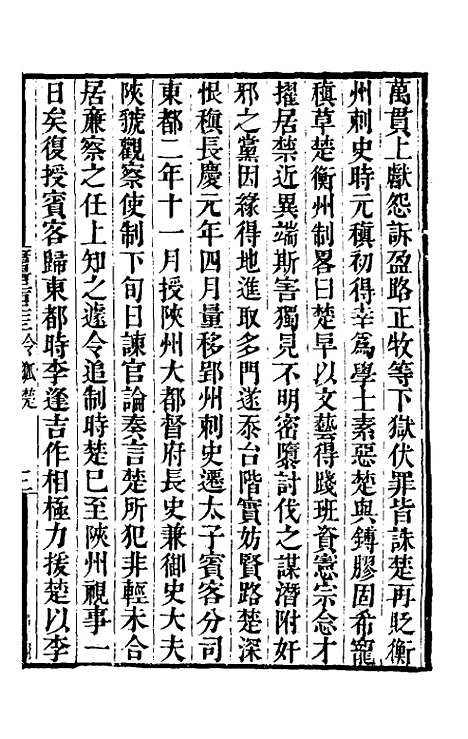 萬貫上獻怨訴盈路正牧等下獄伏罪皆誅楚再貶衡
州刺史時元稹初得幸爲學士素惡楚與鎛膠固希寵
稹草楚衡州制畧曰楚早以文藝得踐班資憲宗念才
擢居禁近異端斯害獨見不明密隳討伐之謀潛附奸
邪之黨因緣得地進取多門遂忝台階實妨賢路楚深
恨稹長慶元年四月量移郢州刺史遷太子賓客分司
東都二年十一月授陝州大都督府長史兼御史大夫
陝虢觀察使制下旬日諫官論奏言楚所犯非輕未合
居廉察之任上知之遽令追制時楚已至陝州視事一
日矣復授賓客歸東都時李逢吉作相極力援楚以李
令狐楚